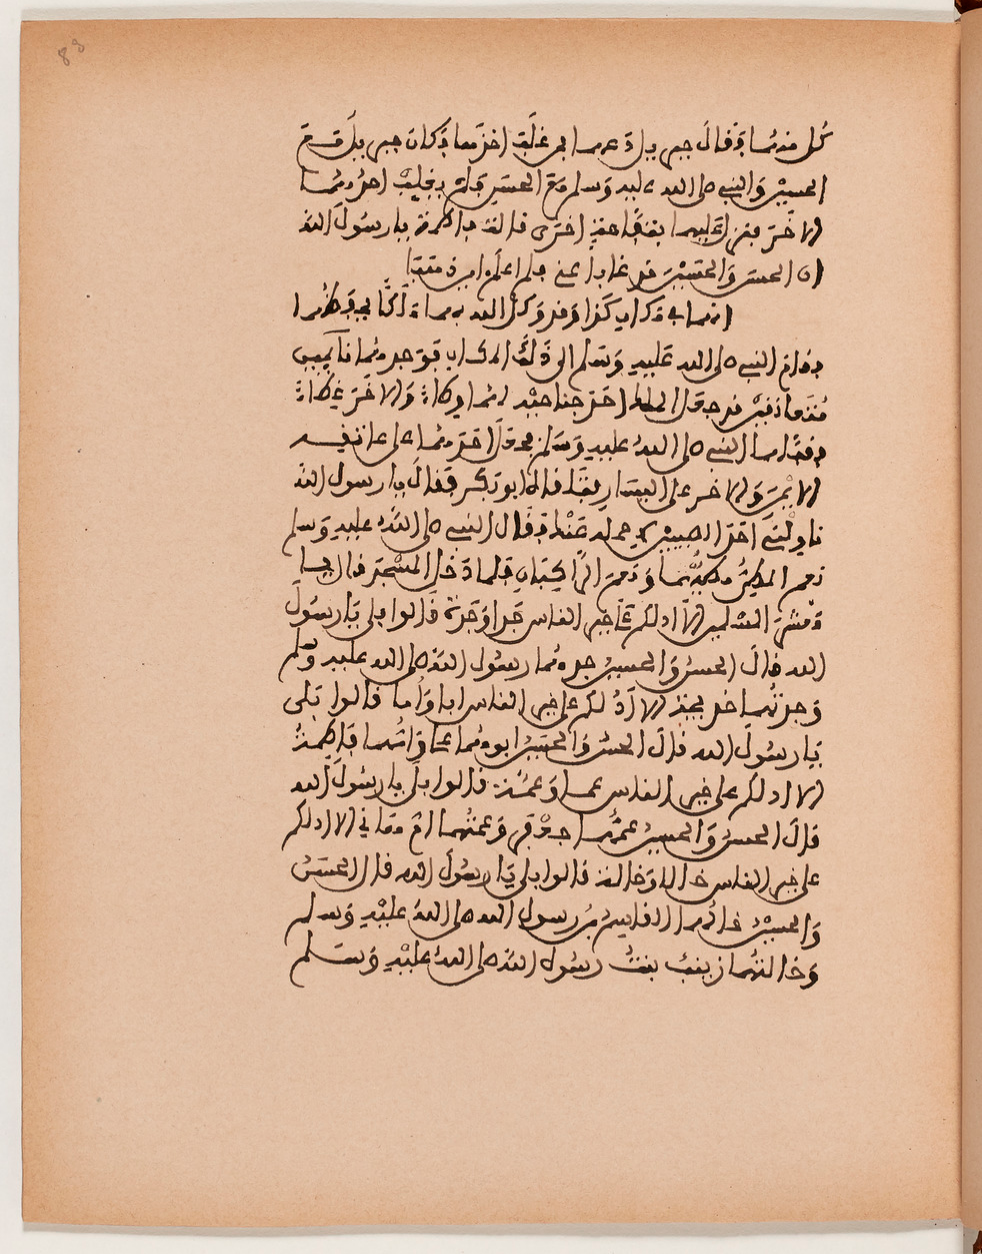 88
كل منهما فقال جبريل دعهما اخذ معا فكان جبريل مع
الحسين والنبي صلى الله عليه وسلم مع الحسن فلم يغلب احدهما
الاخر فقالت فاطمة يا رسول الله
ان الحسن والحسين قد غابا عني فلم اعلم اين
انهما في مكان كذا وكذا وقد وكل الله بهما ملكا
فقام النبي صلى الله عليه وسلم الى ذلك المكان فوجدهما نائمين
متعانقين قد جعل الملك احد جناحيه وطاء والاخر غطاء
النبي صلى الله عليه وسلم فجعل احدهما على عاتقه
الايمن والاخر على اليسار فقال ابو بكر يا رسول الله
ناولني احد الصبيين احمله عنك فقال النبي صلى الله عليه وسلم
نعم المطي مطيهما ونعم الراكبان فلما دخل المسجد قال يا
معشر المسلمين الا ادلكم على خير الناس جدا وجدة قالوا بلى يا رسول
الله قال الحسن والحسين جدهما رسول الله صلى الله عليه وسلم
وجدتهما خديجة الا ادلكم على خير الناس ابا واما قالوا بلى
يا رسول الله قال الحسن والحسين ابوهما علي وامهما فاطمة
الا ادلكم على خير الناس عما وعمة قالوا بلى يا رسول الله
قال الحسن والحسين عمهما جعفر وعمتهما ام هاني الا ادلكم
على خير الناس خالا وخالة قالوا بلى يا رسول الله قال الحسن
والحسين خالهما القاسم بن رسول الله صلى الله عليه وسلم
وخالتهما زينب بنت رسول الله صلى الله عليه وسلم